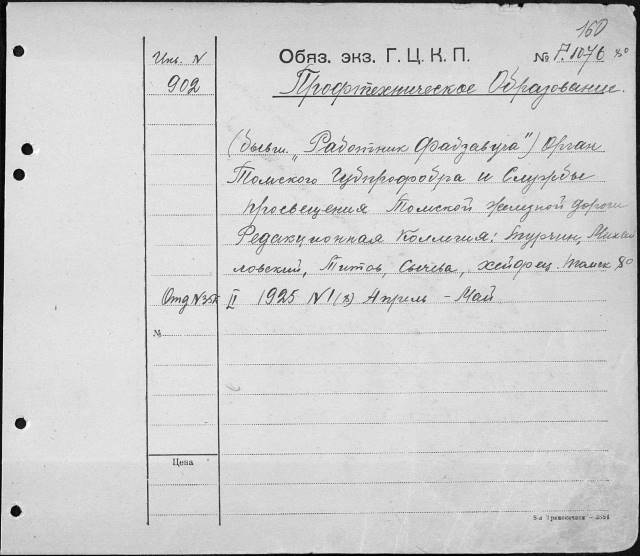 160
Инв. N
Обяз. экз. Г. Ц. К. П.
№ П.1076 80
902
Профтехническое Образование.
(бывш. „Работник Фабзавуча") Орган
Томского Губпрофобра и Службы
просвещения Томской железной дороги
Редакционная Коллегия: Турчин, Михай
ловский, Титов, Сычева, Хейфец. Томск 80
Отд N35к II 1925 N1 Апрель - Май
№
Цена